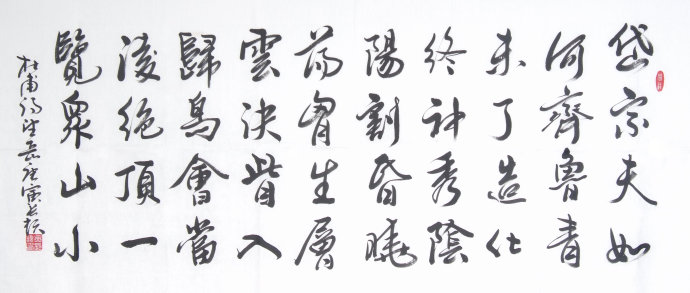 岱宗夫如
何齊魯青
未了造化
終神秀陰
陽割昏曉
蕩胷生層
雲決眥入
歸鳥會當
淩絕頂一
覽衆山小
杜甫詩望岳庚寅